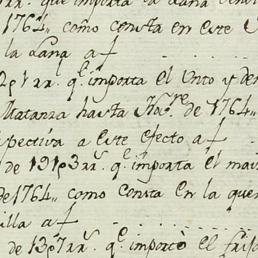 qᵉ importa la Lana
1764,, como consta en este
la Lana a f
291 rrˢ. qᵉ importa el Unto y de
Matanza hasta Novʳᵉ de 1764,,
pectiva a este efecto a f
de 19193 rrˢ. qᵉ importa el mai
de 1764,, como consta en la que
illa a f
de 1397 rrˢ. qᵉ importó el frijo